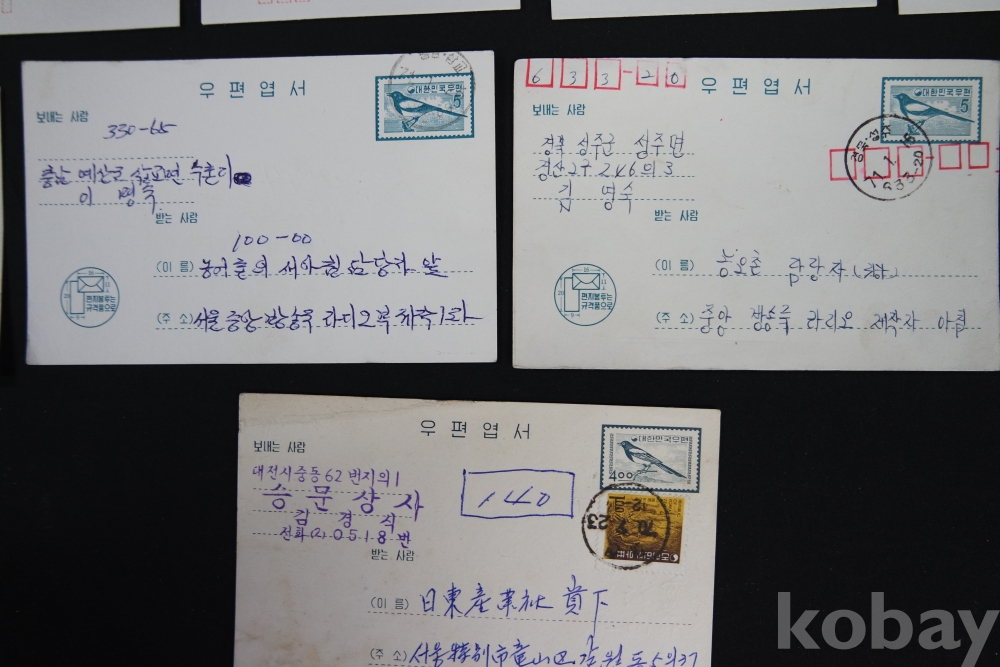 우편엽서
보내는 사람
대한민국우편
5
330-65
충남 예산군 삽교면 수촌리
이 명숙
받는 사람
100-00
(이 름) 농어촌의 새아침 담당자 앞
(주 소) 서울 중앙 방송국 라디오부 제작1과
편지봉투는
규격품으로
우편엽서
633-20
보내는 사람
대한민국우편
5
경북 성주군 성주면
경산2구 246의 3
김 명숙
77.1.
633-20
받는 사람
(이 름) 담당자
(주 소) 중앙 방송국 라디오 제작자
편지봉투는
규격품으로
우편엽서
보내는 사람
대한민국우편
4.00
대전시중동62번지의1
승문상사
김경식
전화(2)0518번
140
70.7.23
받는 사람
(이 름) 日東產業社 貴下
(주 소) 서울特別市龍山区갈월동
kobay